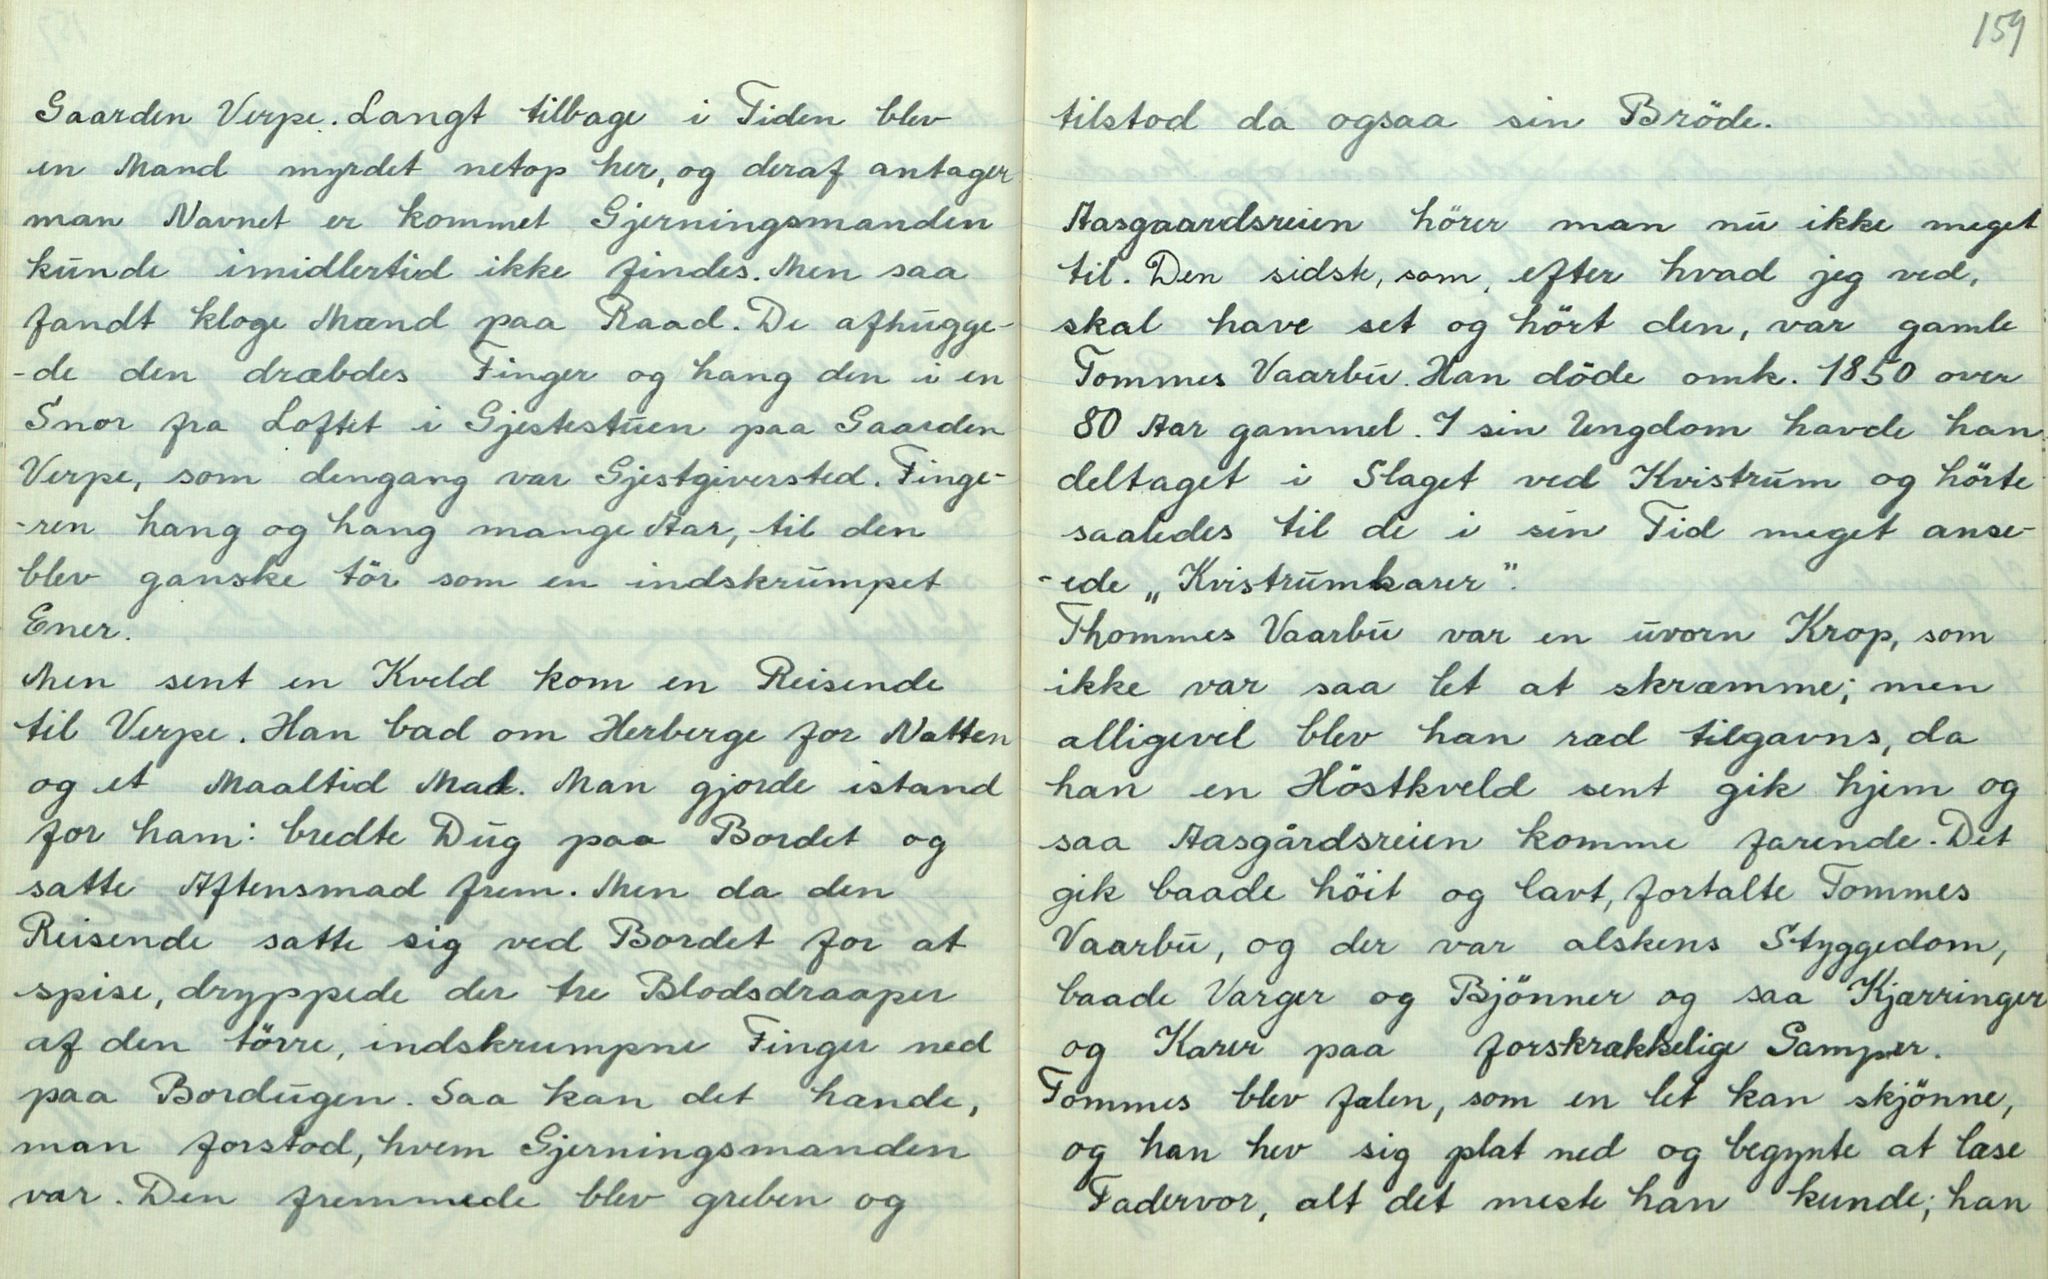 Gaarden Verpe. Langt tilbage i Tiden blev
en Mand myrdet netop her, og deraf antager
man Navnet er kommet Gjerningsmanden
kunde imidlertid ikke findes. Men saa
fandt kloge Mænd paa Raad. De afhugge-
-de den dræbdes Finger og hang den i en
Snor fra Loftet i Gjestestuen paa Gaarden
Verpe, som dengang var Gjestgiversted. Finge-
-ren hang og hang mange Aar, til den
blev ganske tör som en indskrumpet
Ener.
Men sent en Kveld kom en Reisende
til Verpe. Han bad om Herberge for Natten
og et Maaltid Mad. Man gjorde istand
for ham: bredte Dug paa Bordet og
satte Aftensmad frem. Men da den
Reisende satte sig ved Bordet for at
spise, dryppede der tre Blodsdraaper
af den törre, indskrumpne Finger ned
paa Bordugen. Saa kan det hænde,
man forstod, hvem Gjerningsmanden
var. Den fremmede blev greben og
159
tilstod da ogsaa sin Bröde.
Aasgaardsreien hörer man nu ikke meget
til. Den sidste, som, efter hvad jeg ved,
skal have set og hört den, var gamle
Tommes Vaarbu. Han döde omk. 1850 over
80 Aar gammel. I sin Ungdom havde han
deltaget i Slaget ved Kvistrum og hörte
saaledes til de i sin Tid meget anse-
-ede „Kvistrumkarer”.
Thommes Vaarbu var en uvorn Krop, som
ikke var saa let at skræmme; men
alligevel blev han rad tilgavns, da
han en Höstkveld sent gik hjem og
saa Aasgårdsreien komme farende. Det
gik baade höit og lavt, fortalte Tommes
Vaarbu, og der var alskens Styggedom,
baade Varger og Bjönner og saa Kjærringer
og Karer paa forskrækkelige Gamper.
Tommes blev fælen, som en let kan skjönne,
og han hev sig plat ned og begynte at læse
Fadervor, alt det meste han kunde; han